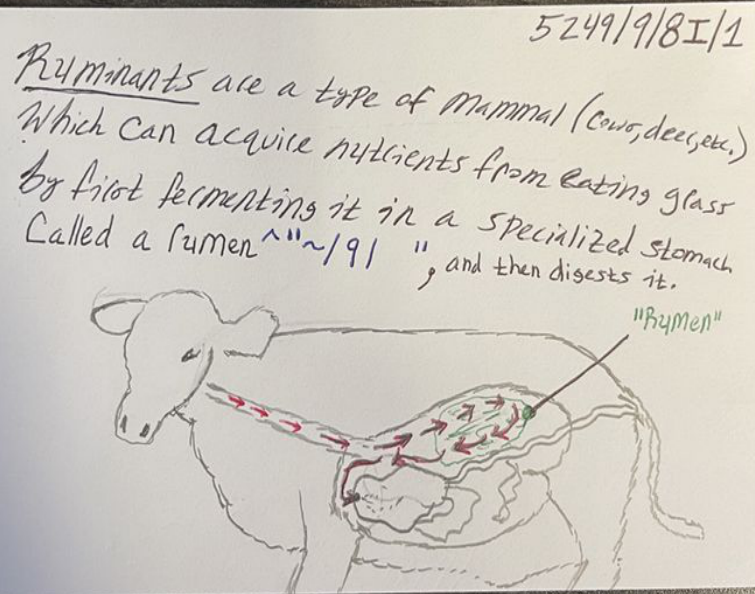 5249/9/8I/1
Ruminants are a type of mammal (cows, deer, etc.)
Which can acquire nutrients from eating grass
by first fermenting it in a specialized stomach
Called a rumen ^"~/91 ", and then digests it.
"Rumen"